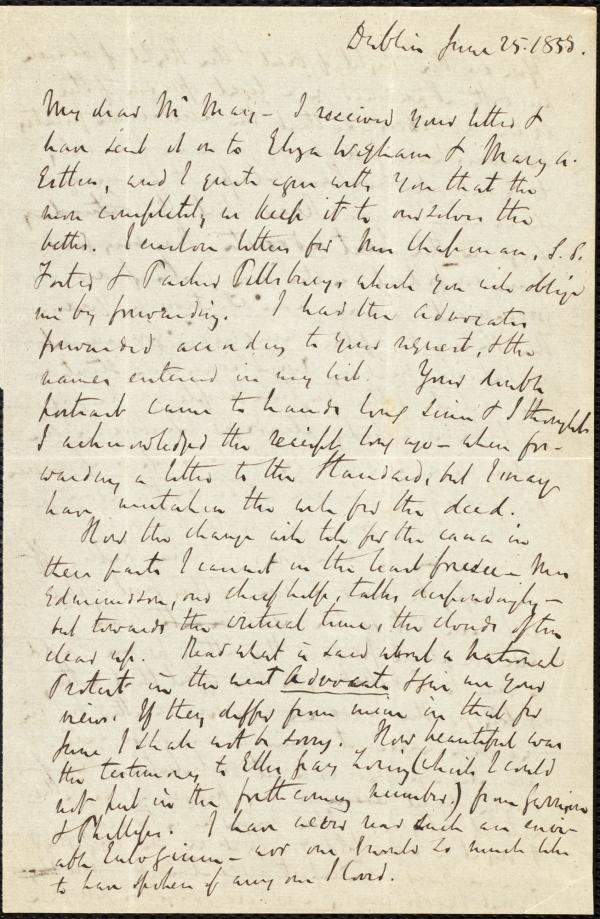 Dublin June 25. 1858.
My dear Mr May - I received your letter &
have sent it on to Eliza Wigham & Mary A.
Estlin, and I quite agree with you that the
more completely we keep it to ourselves the
better. I enclose letters for Mrs Chapman, S. S.
Foster & Parker Pillsbury, which you will oblige
me by forwarding. I had the Advocates
forwarded according to your request, & the
names entered in my list. Your double
portrait came to hand long since & I thought
I acknowledged the receipt long ago - when for-
warding a letter to the Standard, but I may
have mistaken the will for the deed.
How the change will tell for the cause in
these parts I cannot in the least foresee - Mrs
Edmundson, our chief help, talks despondingly -
but towards the critical time, the clouds often
clear up. Read what is said about a National
Protest in the next Advocate & give me your
views. If they differ from mine in that for
June I shall not be sorry. How beautiful was
the testimony to Ellis Gray Loring (which I could
not put in the forthcoming number) from Garrison
& Phillips. I have never read such an envi-
able Eulogium - nor one I would so much like
to have spoken of any one I loved.